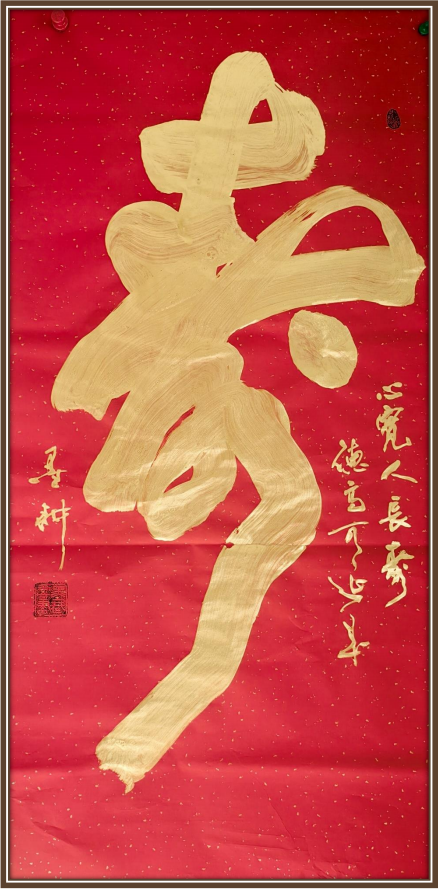 寿
心宽人长寿
德高可延年
墨耕